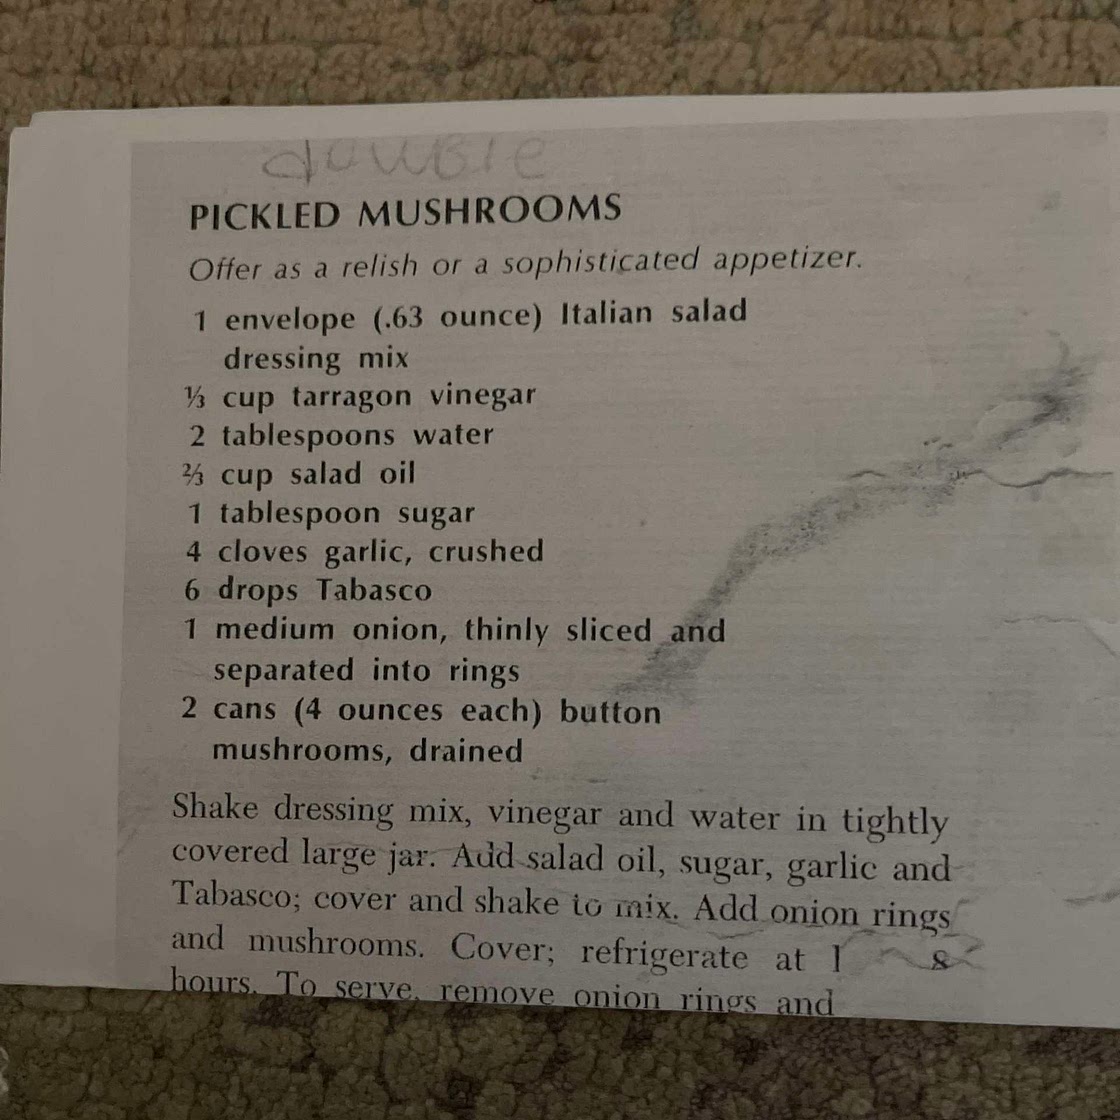 double
PICKLED MUSHROOMS
Offer as a relish or a sophisticated appetizer.
1 envelope (.63 ounce) Italian salad
dressing mix
⅓ cup tarragon vinegar
2 tablespoons water
⅔ cup salad oil
1 tablespoon sugar
4 cloves garlic, crushed
6 drops Tabasco
1 medium onion, thinly sliced and
separated into rings
2 cans (4 ounces each) button
mushrooms, drained
Shake dressing mix, vinegar and water in tightly
covered large jar. Add salad oil, sugar, garlic and
Tabasco; cover and shake to mix. Add onion rings
and mushrooms. Cover; refrigerate at 8
hours. To serve, remove onion rings and